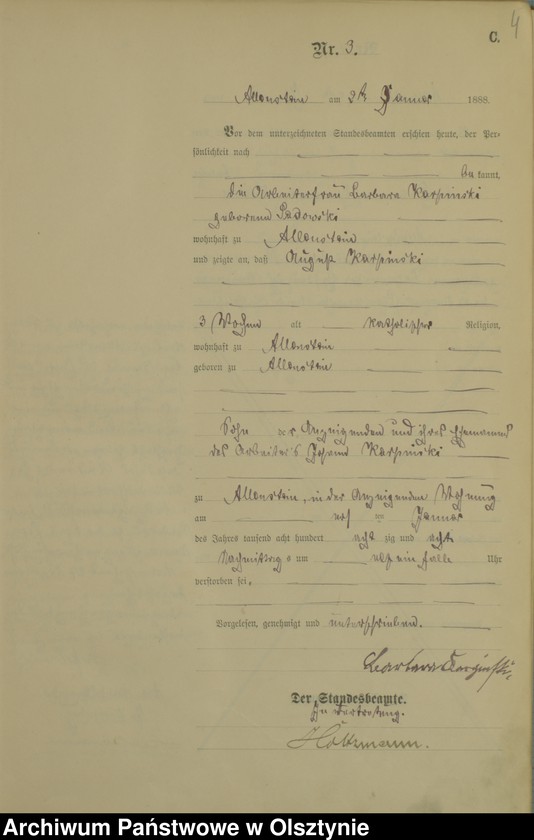 4
C.
Nr. 3.
Allenstein am 2t Januar 1888.
Vor dem unterzeichneten Standesbeamten erschien heute, der Per-
sönlichkeit nach
be kannt,
die Arbeiterfrau Barbara Karpinski
geborene Sadowski
wohnhaft zu Allenstein
und zeigte an, daß August Karpinski
3 Wochen alt katholischer Religion,
wohnhaft zu Allenstein
geboren zu Allenstein
Sohn der Anzeigenden und ihres Ehemannes
des Arbeiters Johann Karpinski
zu Allenstein, in der Anzeigenden Wohnung
am ersten Januar
des Jahres tausend acht hundert acht zig und acht
Nachmittags um ein halb Uhr
verstorben sei.
Vorgelesen, genehmigt und unterschrieben.
Barbara Karpinski
Der Standesbeamte.
In Vertretung.
Archiwum Państwowe w Olsztynie